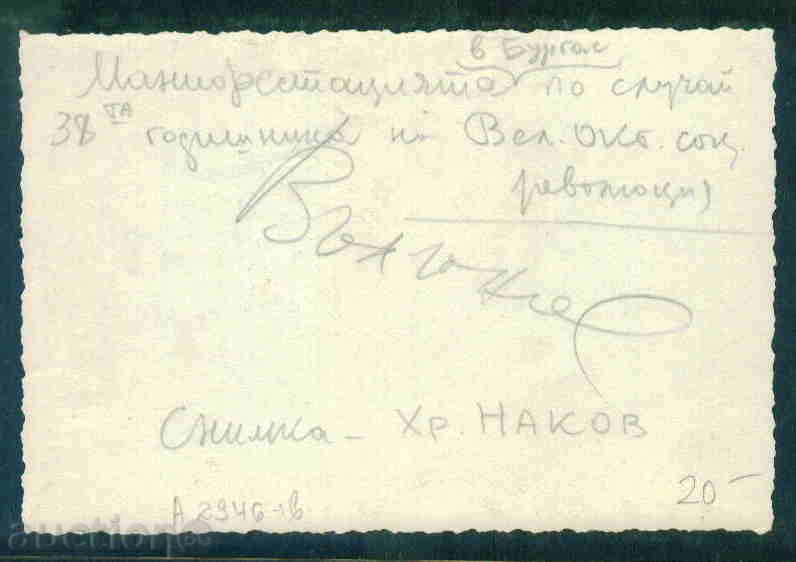 в Бургас
Манифестацията по случай
38 та годишнина на Вел. Окт. соц.
революция
Снимка - Хр. НАКОВ
20-
А 2946-ів
auction